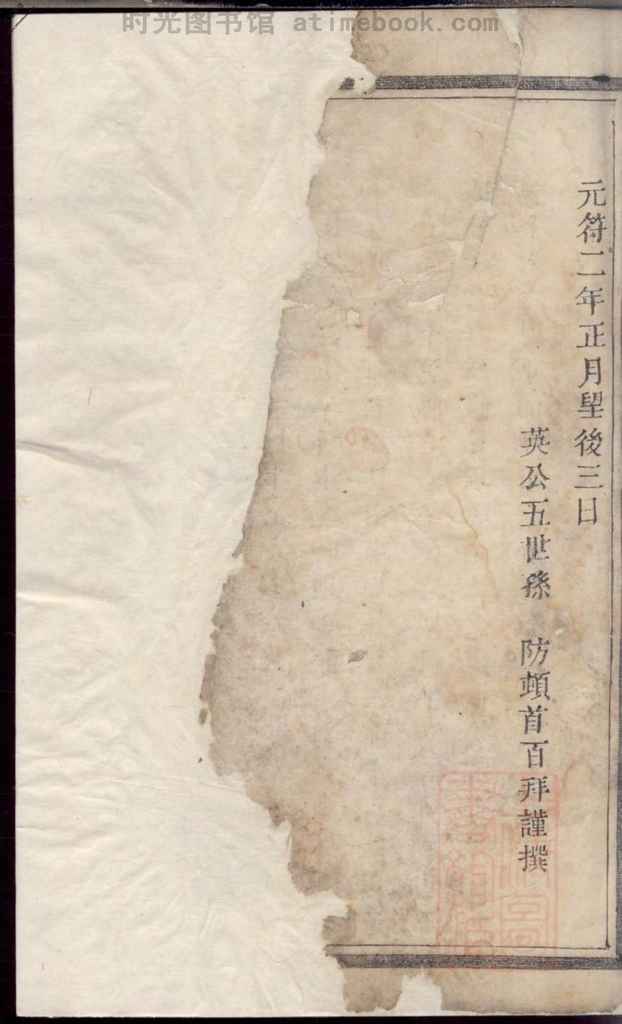 时光图书馆 atimebook.com
元符二年正月朢後三日
英公五世孫 防頓首百拜謹撰